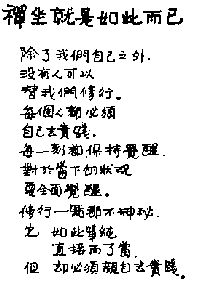 禪坐就是如此而已
除了我們自己之外.
沒有人可以
替我們修行。
每個人都必須
自己去實踐.
每一刻都保持覺醒.
對於當下的狀況
要全面覺醒。
修行一點都不神秘.
它 如此單純
直接而了當.
但 卻必須親自去實踐。